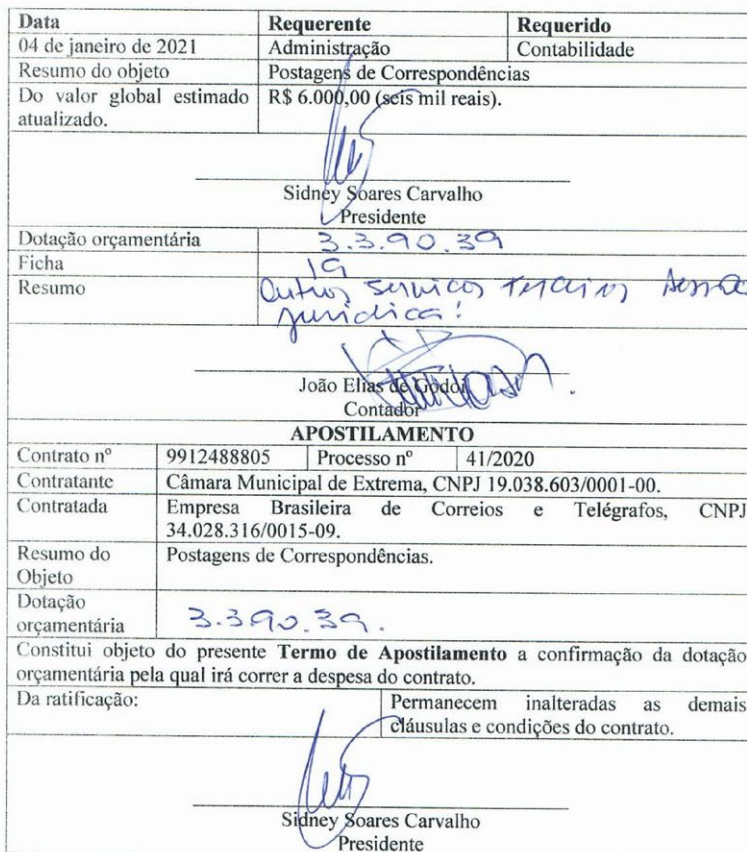 Data Requerente Requerido
04 de janeiro de 2021 Administração Contabilidade
Resumo do objeto Postagens de Correspondências
Do valor global estimado R$ 6.000,00 (seis mil reais).
atualizado.
Sidney Soares Carvalho
Presidente
Dotação orçamentária 3.3.90.39
Ficha 19
Resumo Outros serviços terceiros
jurídica!
João Elias de Godoi
Contador
APOSTILAMENTO
Contrato nº 9912488805 Processo nº 41/2020
Contratante Câmara Municipal de Extrema, CNPJ 19.038.603/0001-00.
Contratada Empresa Brasileira de Correios e Telégrafos, CNPJ
34.028.316/0015-09.
Resumo do Postagens de Correspondências.
Objeto
Dotação
orçamentária 3.390.39.
Constitui objeto do presente Termo de Apostilamento a confirmação da dotação
orçamentária pela qual irá correr a despesa do contrato.
Da ratificação: Permanecem inalteradas as demais
cláusulas e condições do contrato.
Sidney Soares Carvalho
Presidente